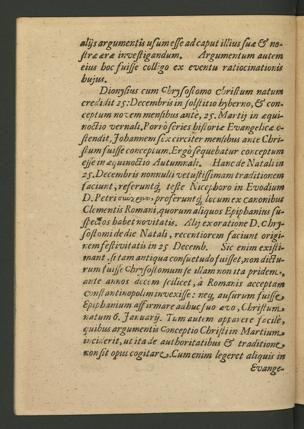 alijs argumentis usum esse ad caput illius suæ & no-
stræ æræ investigandum. Argumentum autem
eius hoc fuisse colligo ex eventu ratiocinationis
hujus.
Dionysius cum Chrysostomo Christum natum
credidit 25: Decembris in solstitio hyberno, & con-
ceptum novem mensibus ante, 25. Martij in æqui-
noctio vernali, Porrò series historiæ Evangelicæ o-
stendit, Johannem sex circiter mensibus ante Chri-
stum fuisse conceptum, Ergò sequebatur conceptum
esse in æquinoctio Autumnali. Hanc de Natali in
25. Decembris nonnulli vetustissimam traditionem
faciunt, referuntq; teste Nicephoro in Evodium
D. Petri proferuntq; locum ex canonibus
Clementis Romani, quorum aliquos Epiphanius su-
spectos habet novitatis. Alij ex oratione D. Chry-
sostomi de die Natali, recentiorem faciunt origi-
nem festivitatis in 25 Decemb. Sic enim existi-
mant, si tam antiqua consuetudo fuisset, non dictu-
rum fuisse Chrysostomum se illam non ita pridem,
ante annos decem scilicet, à Romanis acceptam
Constantinopolim invexisse: neq; ausurum fuisse
Epiphanium affirmare adhuc suo ævo, Christum
natum 6. Januarij. Tum autem apparere facilè,
quibus argumentis Conceptio Christi in Martium
inciderit, ut ita de authoritatibus & traditione
non sit opus cogitare. Cum enim legeret aliquis in
Evange-